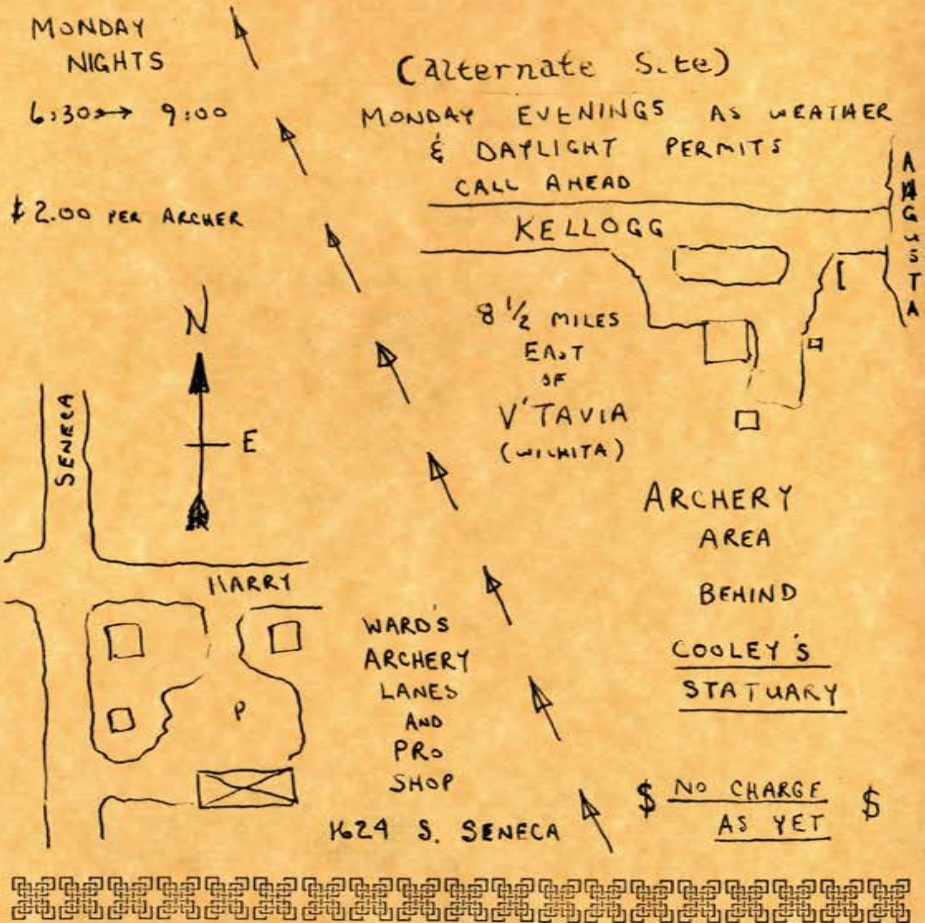 MONDAY
NIGHTS
6:30 → 9:00
$2.00 PER ARCHER
N
E
SENECA
HARRY
P
WARD'S
ARCHERY
LANES
AND
PRO
SHOP
1624 S. SENECA
(alternate Site)
MONDAY EVENINGS AS WEATHER
& DAYLIGHT PERMITS
CALL AHEAD
KELLOGG
AUGUSTA
8 1/2 MILES
EAST
OF
V'TAVIA
(WICHITA)
ARCHERY
AREA
BEHIND
COOLEY'S
STATUARY
$ NO CHARGE $
AS YET